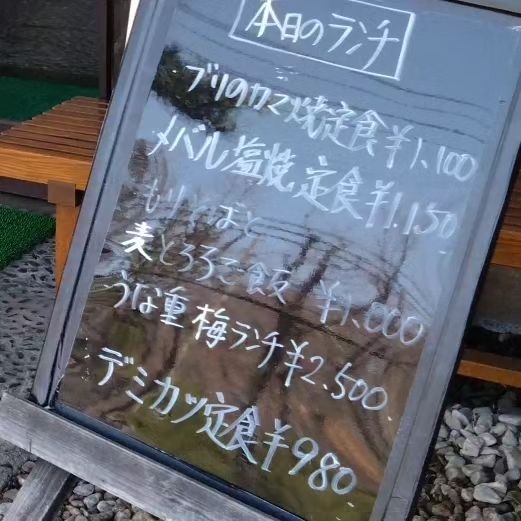 本日のランチ
ブリのカマ焼定食¥1,100
メバル塩焼定食¥1,150
もりそばと
麦とろろご飯 ¥1,000
うな重 梅ランチ¥2,500
デミカツ定食¥980